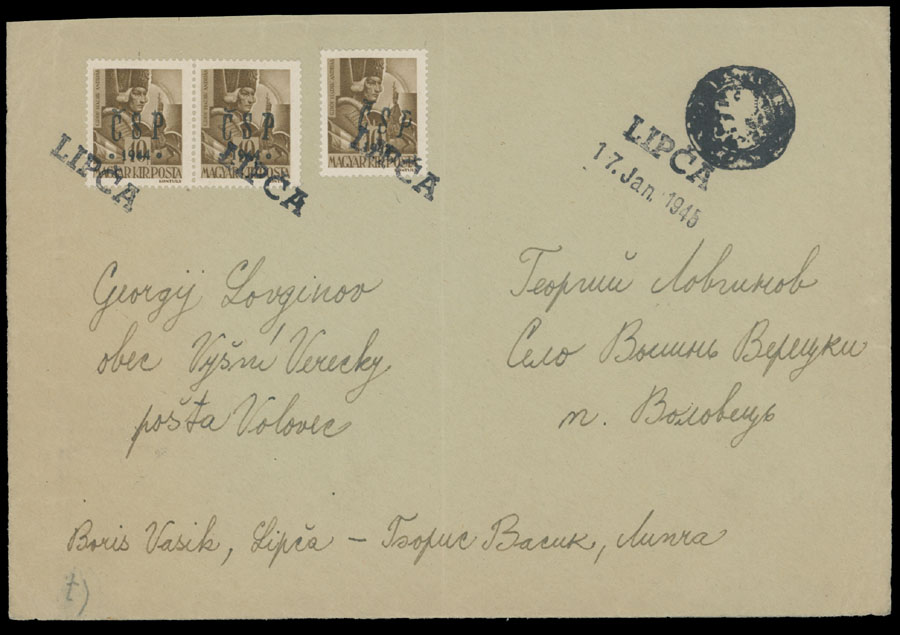 ČSP
1944
10
MAGYAR KIR. POSTA
ČSP
10
MAGYAR KIR. POSTA
ČSP
10
MAGYAR KIR. POSTA
LIPČA
LIPČA
LIPČA
LIPČA
17. Jan. 1945
Georgij Lovginov
obec Vyšní Verecky
pošta Volovec
Георгий Ловгинов
Село Вышнь Верецки
п. Воловець
Boris Vasik, Lipča – Борис Васик, Липча
t)